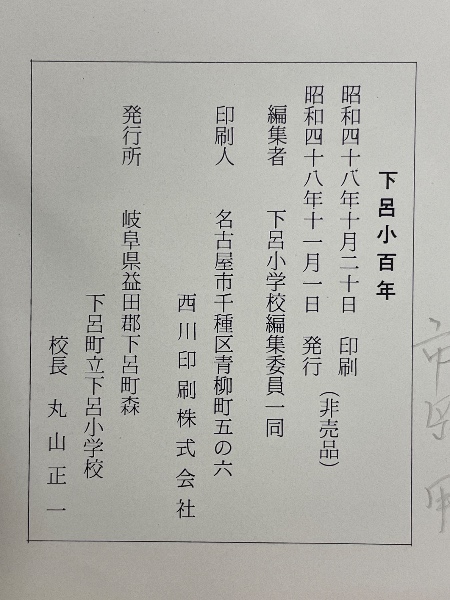 下呂小百年
昭和四十八年十月二十日 印刷
昭和四十八年十一月一日 発行
(非売品)
編集者 下呂小学校編集委員一同
印刷人 名古屋市千種区青柳町五の六
西川印刷株式会社
発行所 岐阜県益田郡下呂町森
下呂町立下呂小学校
校長 丸山正一